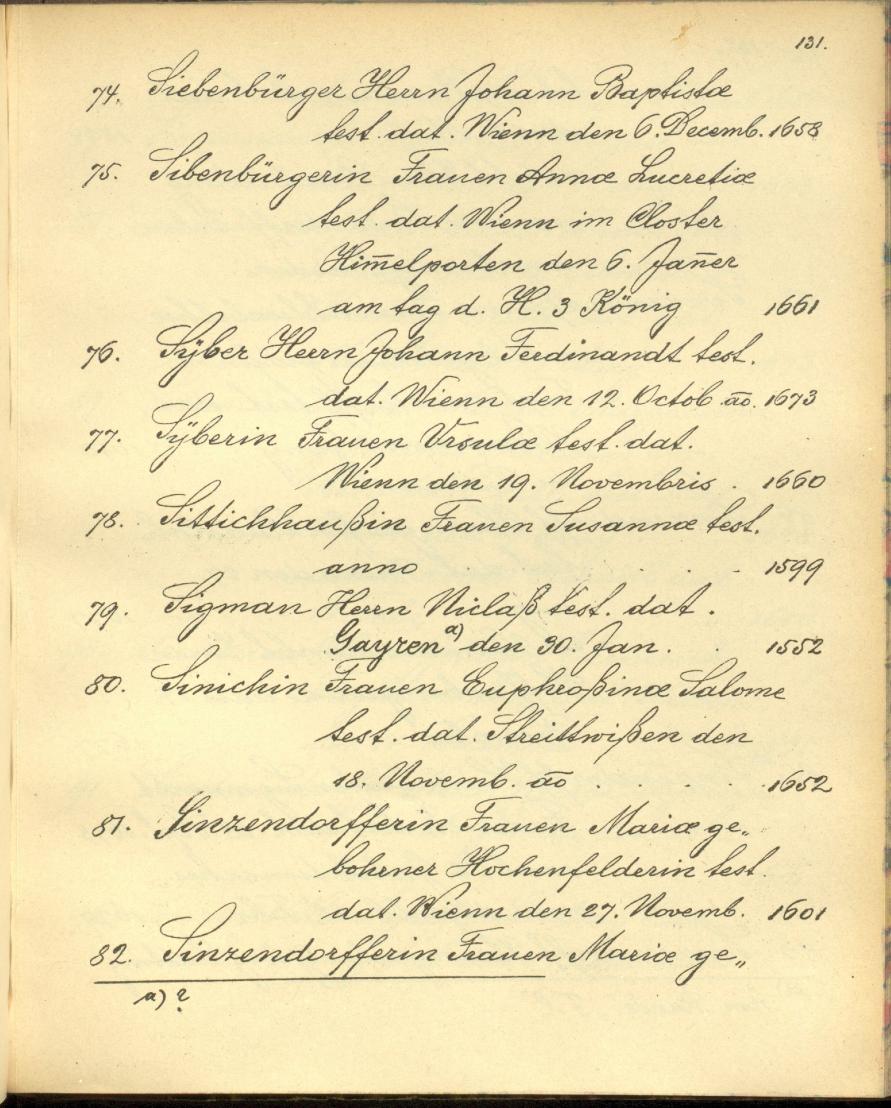 131.
74. Siebenbürger Herrn Johann Baptistæ
test. dat. Wienn den 6. Decemb. 1658
75. Sibenbürgerin Frauen Annæ Lucretiæ
test. dat. Wienn im Closter
Him̄elporten den 6. Jan̄er
am tag d. H. 3 König 1661
76. Sÿber Herrn Johann Ferdinandt test.
dat. Wienn den 12. Octob āo. 1673
77. Sÿberin Frauen Vrsulæ test. dat.
Wienn den 19. Novembris . 1660
78. Sittichhaußin Frauen Susannæ test.
anno . . . 1599
79. Sigman Herrn Niclaß test. dat.
Gayren a) den 30. Jan. . . 1552
80. Sinichin Frauen Euphroßinæ Salome
test. dat. Streittwißen den
18. Novemb. āo . . . . . 1652
81. Sinzendorfferin Frauen Mariæ ge„
bohrner Hochenfelderin test.
dat. Wienn den 27. Novemb. 1601
82. Sinzendorfferin Frauen Mariæ ge„
a) ?